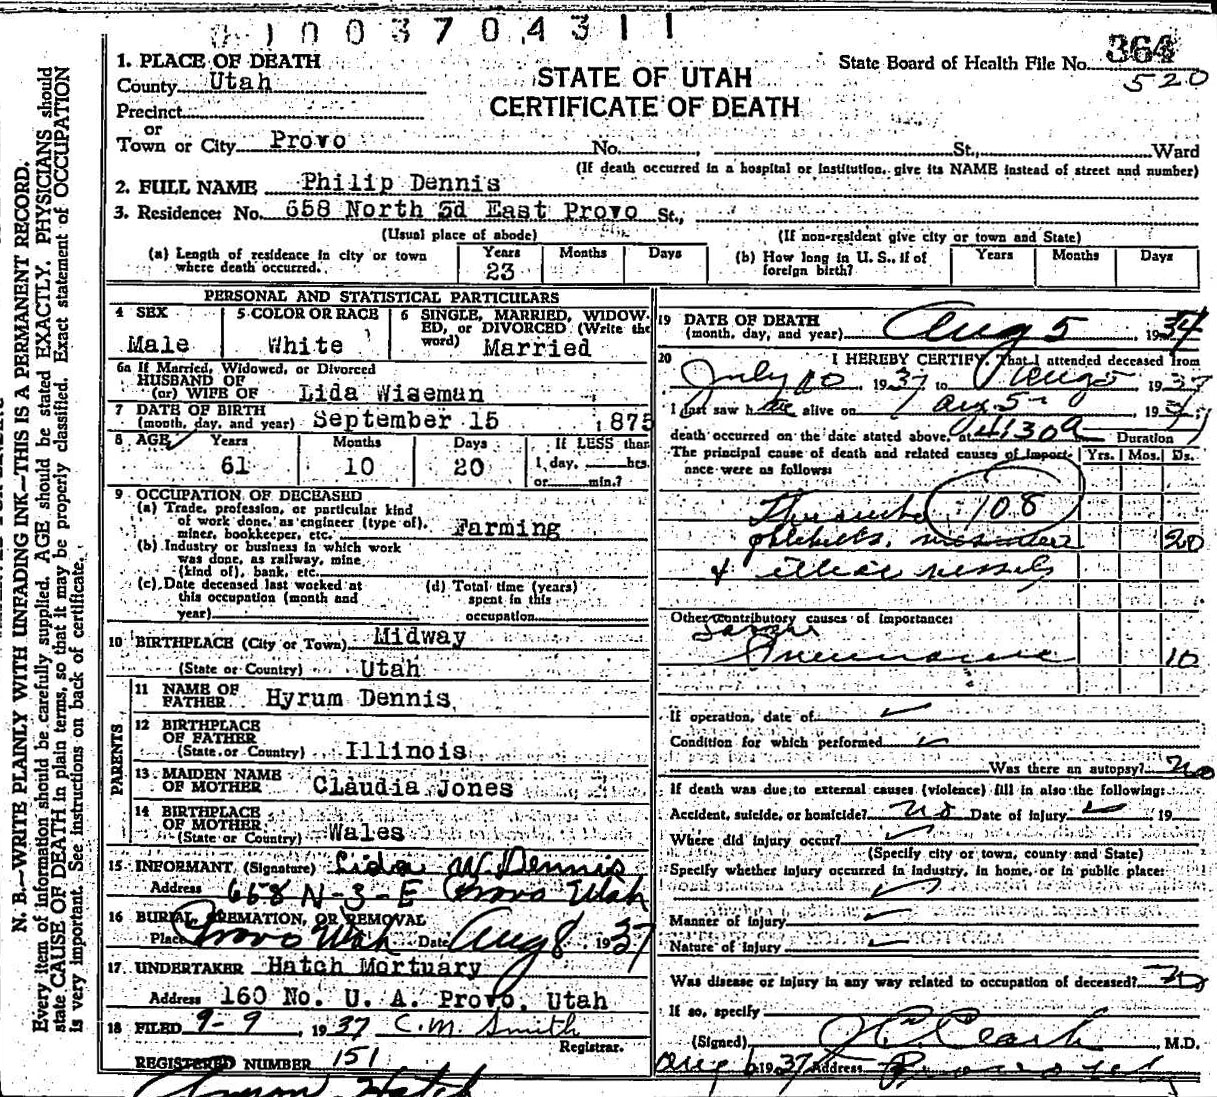 01003704311
1. PLACE OF DEATH
County Utah
Precinct
or
Town or City Provo No. St., Ward
STATE OF UTAH
CERTIFICATE OF DEATH
State Board of Health File No. 364
520
(If death occurred in a hospital or institution, give its NAME instead of street and number)
2. FULL NAME Philip Dennis
3. Residence: No. 658 North 3d East Provo St.,
(Usual place of abode) (If non-resident give city or town and State)
(a) Length of residence in city or town where death occurred. Years 23 Months Days
(b) How long in U. S., if of foreign birth? Years Months Days
PERSONAL AND STATISTICAL PARTICULARS
4 SEX Male
5 COLOR OR RACE White
6 SINGLE, MARRIED, WIDOWED, or DIVORCED (Write the word) Married
6a If Married, Widowed, or Divorced
HUSBAND OF
(or) WIFE OF Lida Wiseman
7 DATE OF BIRTH
(month, day, and year) September 15 1875
8 AGE Years 61 Months 10 Days 20 If LESS than
1 day, hrs.
or min.?
9 OCCUPATION OF DECEASED
(a) Trade, profession, or particular kind
of work done, as engineer (type of),
miner, bookkeeper, etc. Farming
(b) Industry or business in which work
was done, as railway, mine
(kind of), bank, etc.
(c) Date deceased last worked at
this occupation (month and
year)
(d) Total time (years)
spent in this
occupation
10 BIRTHPLACE (City or Town) Midway
(State or Country) Utah
PARENTS
11 NAME OF
FATHER Hyrum Dennis
12 BIRTHPLACE
OF FATHER
(State or Country) Illinois
13 MAIDEN NAME
OF MOTHER Claudia Jones
14 BIRTHPLACE
OF MOTHER
(State or Country) Wales
15 INFORMANT (Signature) Lida W. Dennis
Address 658 N-3-E Provo Utah
16 BURIAL, CREMATION, OR REMOVAL
Place Provo Utah Date Aug 8, 1937
17 UNDERTAKER Hatch Mortuary
Address 160 No. U. A. Provo, Utah
18 FILED 9-9, 1937 C.M. Smith
Registrar.
REGISTERED NUMBER 151
19 DATE OF DEATH
(month, day, and year) Aug 5 1937
20 I HEREBY CERTIFY, That I attended deceased from
July 10 1937 to Aug 5 1937
I last saw h alive on Aug 5 19
death occurred on the date stated above, at Duration
The principal cause of death and related causes of importance were as follows: Yrs. Mos. Ds.
108
20
Other contributory causes of importance:
Pneumonia 10
If operation, date of
Condition for which performed
Was there an autopsy? no
If death was due to external causes (violence) fill in also the following:
Accident, suicide, or homicide? no Date of injury 19
Where did injury occur?
(Specify city or town, county and State)
Specify whether injury occurred in industry, in home, or in public place:
Manner of injury
Nature of injury
Was disease or injury in any way related to occupation of deceased? no
If so, specify
(Signed) M.D.
Aug 6 1937 Address
N. B.—WRITE PLAINLY WITH UNFADING INK—THIS IS A PERMANENT RECORD.
Every item of information should be carefully supplied. AGE should be stated EXACTLY. PHYSICIANS should
state CAUSE OF DEATH in plain terms, so that it may be properly classified. Exact statement of OCCUPATION
is very important. See instructions on back of certificate.